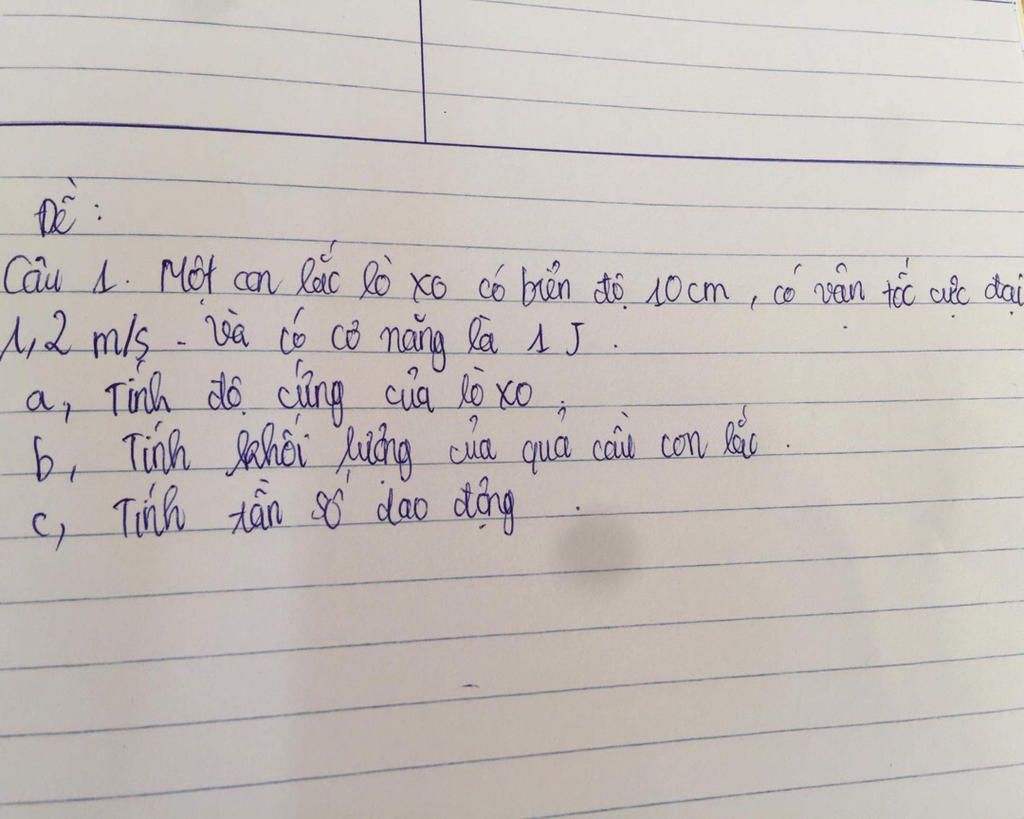 Đề :
Câu 1. Một con lắc lò xo có biên độ 10cm, có vận tốc cực đại
1,2 m/s - và có cơ năng là 1 J .
a, Tính độ cứng của lò xo .
b, Tính khối lượng của quả cầu con lắc .
c, Tính tần số dao động .